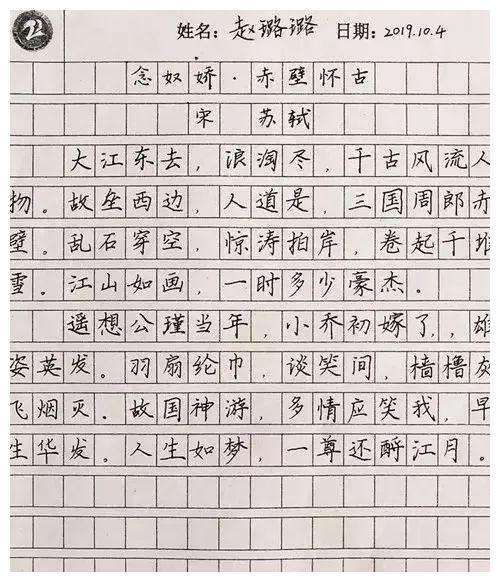 姓名：赵璐璐 日期：2019.10.4
念奴娇·赤壁怀古
宋 苏轼
大江东去，浪淘尽，千古风流人
物。故垒西边，人道是，三国周郎赤
壁。乱石穿空，惊涛拍岸，卷起千堆
雪。江山如画，一时多少豪杰。
遥想公瑾当年，小乔初嫁了，雄
姿英发。羽扇纶巾，谈笑间，樯橹灰
飞烟灭。故国神游，多情应笑我，早
生华发。人生如梦，一尊还酹江月。